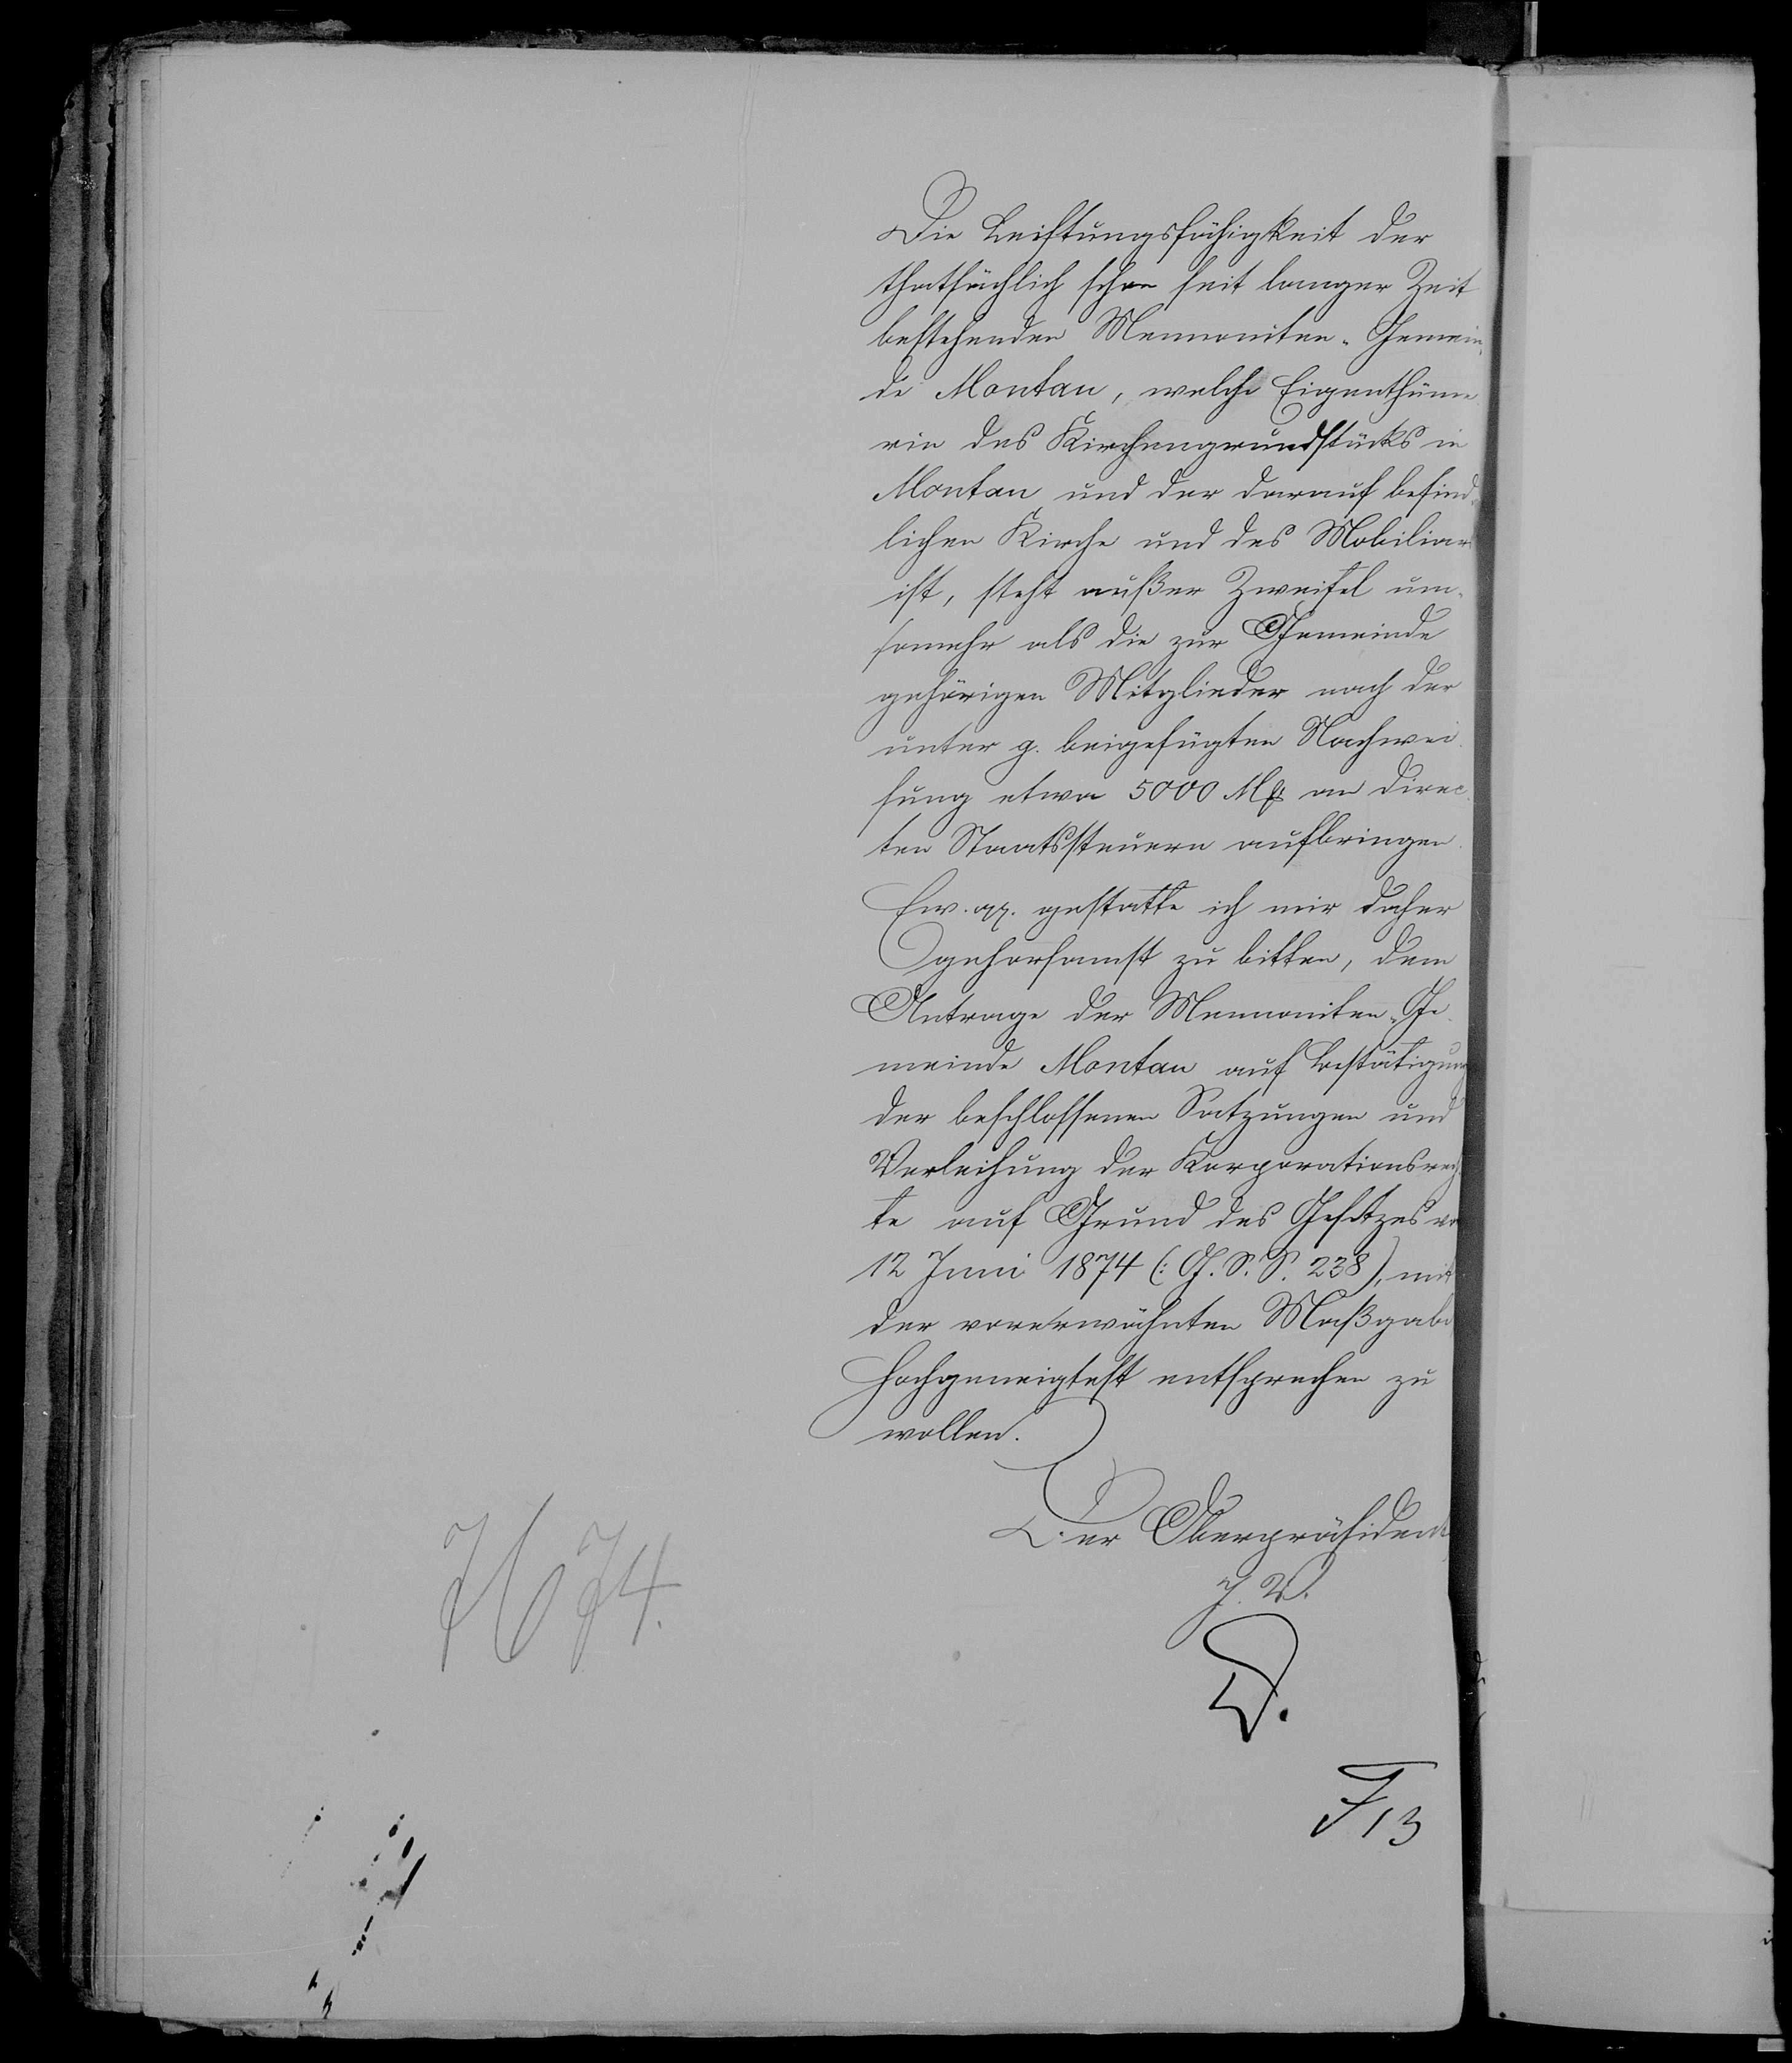 Die Leistungsfähigkeit der
thatsächlich schon seit langer Zeit
bestehenden Mennoniten-Gemein-
de Montau, welche Eigenthüme-
rin des Kirchengrundstücks in
Montau und der darauf befind-
lichen Kirche und des Mobiliars
ist, steht außer Zweifel um-
somehr als die zur Gemeinde
gehörigen Mitglieder nach der
unter g. beigefügten Nachwei-
sung etwa 5000 Mk an direc-
ten Staatssteuern aufbringen.
Ew. pp. gestatte ich mir daher
gehorsamst zu bitten, dem
Antrage der Mennoniten-Ge-
meinde Montau auf Bestätigung
der beschlossenen Satzungen und
Verleihung der Korporationsrech-
te auf Grund des Gesetzes vo
12 Juni 1874 (: G. S. S. 238), mit
der vorerwähnten Maßgabe
hochgeneigtest entsprechen zu
wollen.
Der Oberpräsident
J. V.
F 13